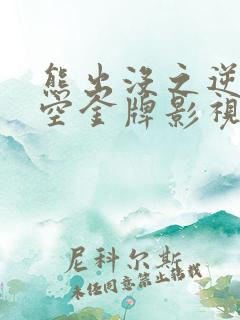 熊出没之逆
空金牌影視
尼科尔斯
未经同意禁止转载